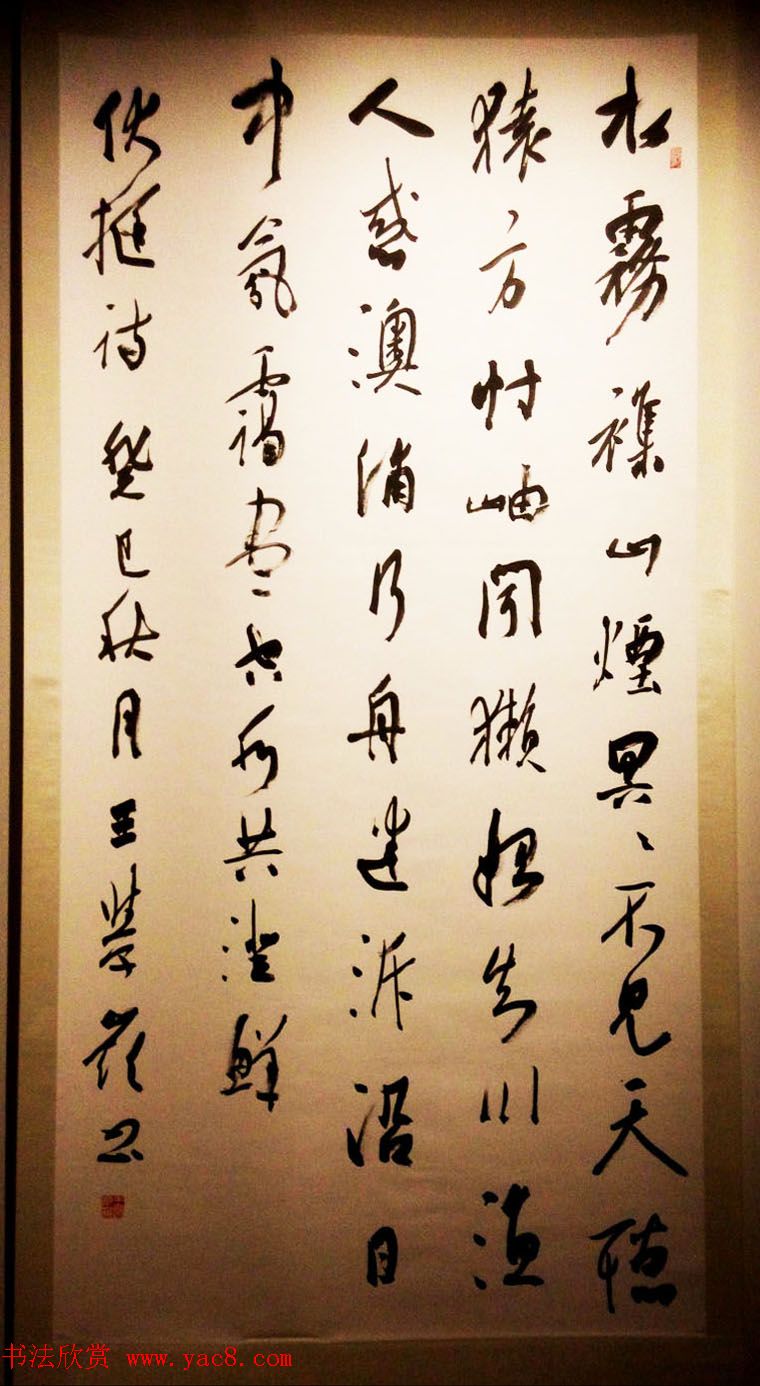 水霧襍山煙冥〻不見天聽
猿方忖岫聞獺始知川漁
人惑澳浦行舟迷泝沿日
中氛靄盡空水共澄鮮
伏挺詩 癸巳秋月王學嶺書
书法欣赏 www.yac8.com